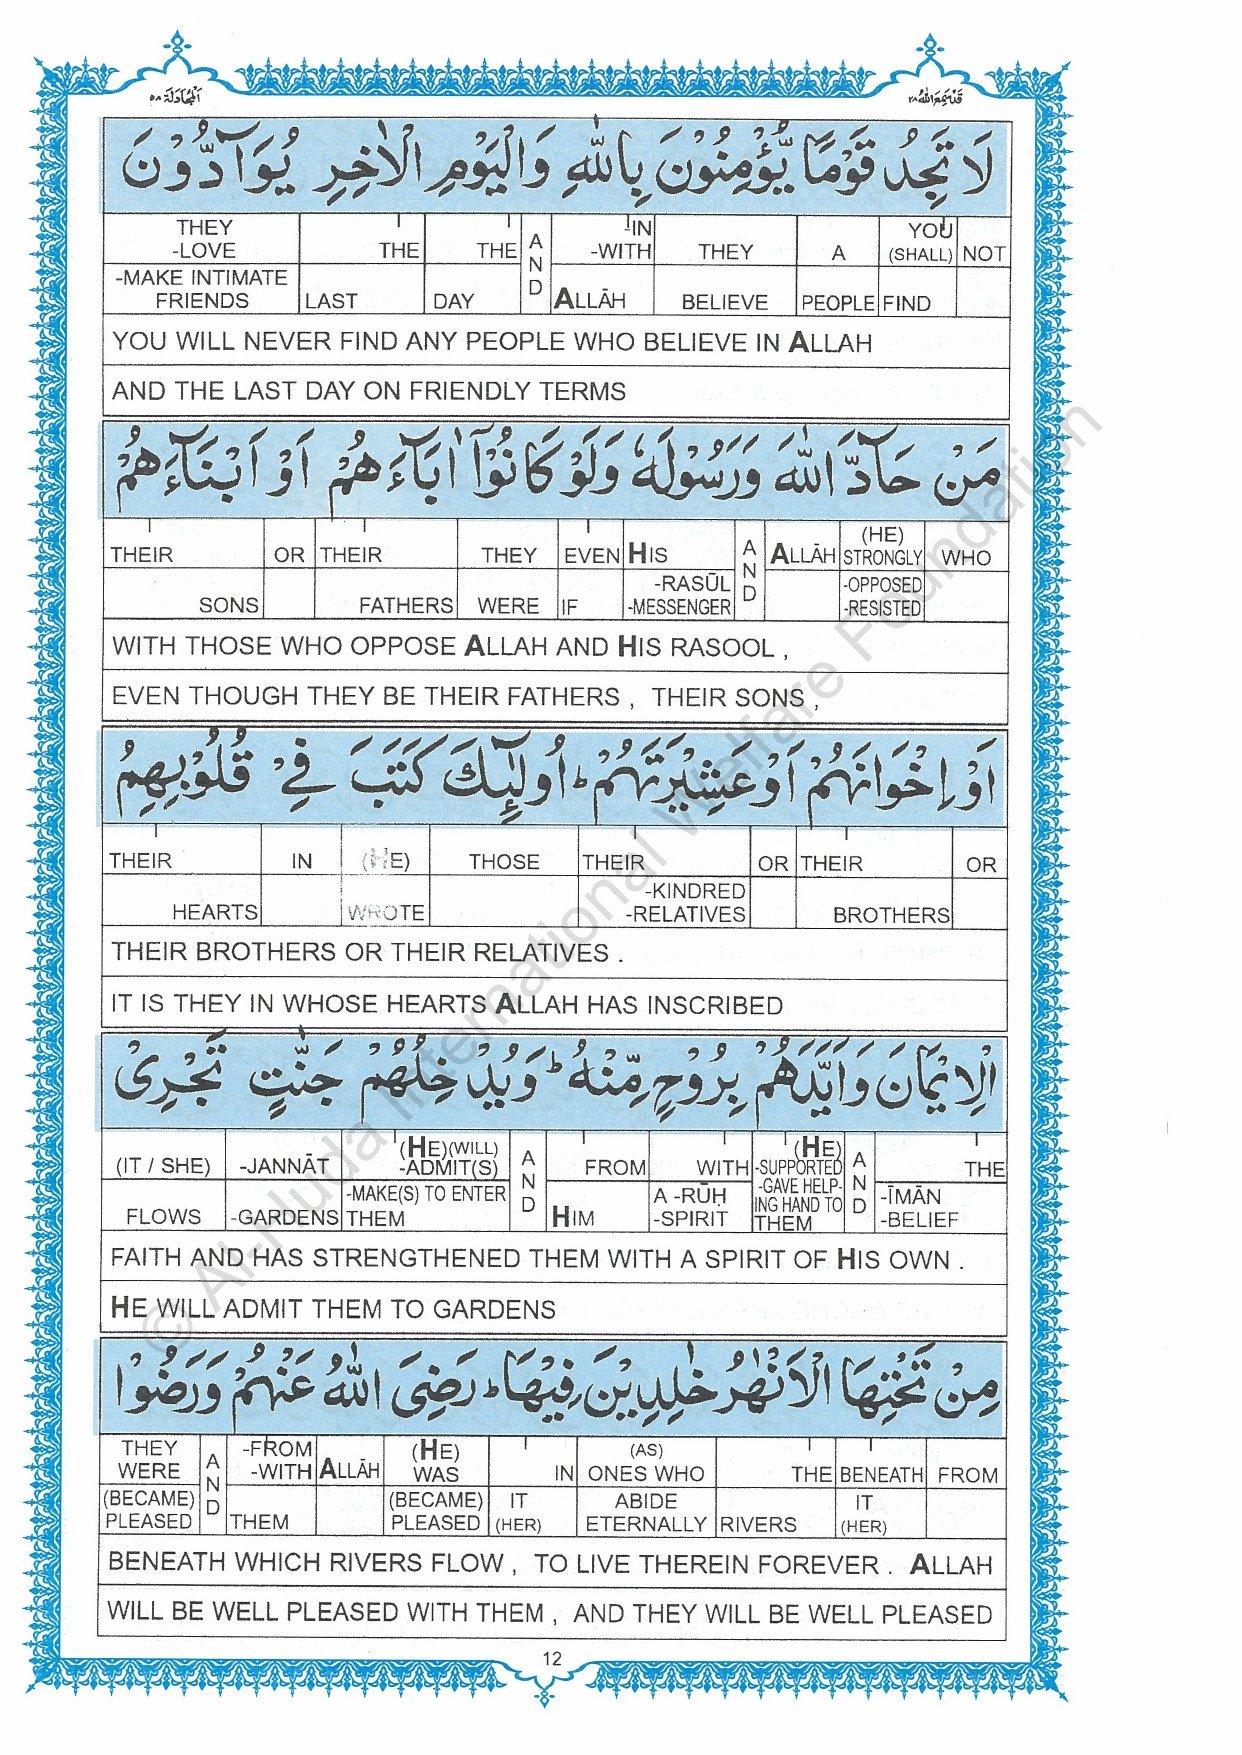 اَلْمُجَادَلَة ٥٨
قَدْ سَمِعَ اللّٰهُ ٢٨
لَا تَجِدُ قَوْمًا يُّؤْمِنُوْنَ بِاللّٰهِ وَالْيَوْمِ الْاٰخِرِ يُوَآدُّوْنَ
THEY -LOVE THE THE AND -IN -WITH THEY A YOU (SHALL) NOT
-MAKE INTIMATE FRIENDS LAST DAY ALLĀH BELIEVE PEOPLE FIND
YOU WILL NEVER FIND ANY PEOPLE WHO BELIEVE IN ALLAH
AND THE LAST DAY ON FRIENDLY TERMS
مَنْ حَآدَّ اللّٰهَ وَرَسُوْلَهٗ وَلَوْ كَانُوْٓا اٰبَآءَهُمْ اَوْ اَبْنَآءَهُمْ
THEIR OR THEIR THEY EVEN HIS AND ALLĀH (HE) STRONGLY WHO
SONS FATHERS WERE IF -RASŪL -MESSENGER -OPPOSED -RESISTED
WITH THOSE WHO OPPOSE ALLAH AND HIS RASOOL ,
EVEN THOUGH THEY BE THEIR FATHERS , THEIR SONS ,
اَوْ اِخْوَانَهُمْ اَوْ عَشِيْرَتَهُمْ ؕ اُولٰٓئِكَ كَتَبَ فِيْ قُلُوْبِهِمُ
THEIR IN (HE) THOSE THEIR OR THEIR OR
HEARTS WROTE -KINDRED -RELATIVES BROTHERS
THEIR BROTHERS OR THEIR RELATIVES .
IT IS THEY IN WHOSE HEARTS ALLAH HAS INSCRIBED
الْاِيْمَانَ وَاَيَّدَهُمْ بِرُوْحٍ مِّنْهُ ؕ وَيُدْخِلُهُمْ جَنّٰتٍ تَجْرِيْ
(IT / SHE) -JANNĀT (HE)(WILL) -ADMIT(S) AND FROM WITH (HE) -SUPPORTED -GAVE HELP- AND THE
FLOWS -GARDENS -MAKE(S) TO ENTER THEM HIM A -RŪḤ -SPIRIT ING HAND TO THEM -ĪMĀN -BELIEF
FAITH AND HAS STRENGTHENED THEM WITH A SPIRIT OF HIS OWN .
HE WILL ADMIT THEM TO GARDENS
مِنْ تَحْتِهَا الْاَنْهٰرُ خٰلِدِيْنَ فِيْهَا ؕ رَضِيَ اللّٰهُ عَنْهُمْ وَرَضُوْا
THEY WERE AND -FROM -WITH ALLĀH (HE) WAS IN (AS) ONES WHO THE BENEATH FROM
(BECAME) PLEASED THEM (BECAME) PLEASED IT (HER) ABIDE ETERNALLY RIVERS IT (HER)
BENEATH WHICH RIVERS FLOW , TO LIVE THEREIN FOREVER . ALLAH
WILL BE WELL PLEASED WITH THEM , AND THEY WILL BE WELL PLEASED
12
© Al-Huda International Welfare Foundation